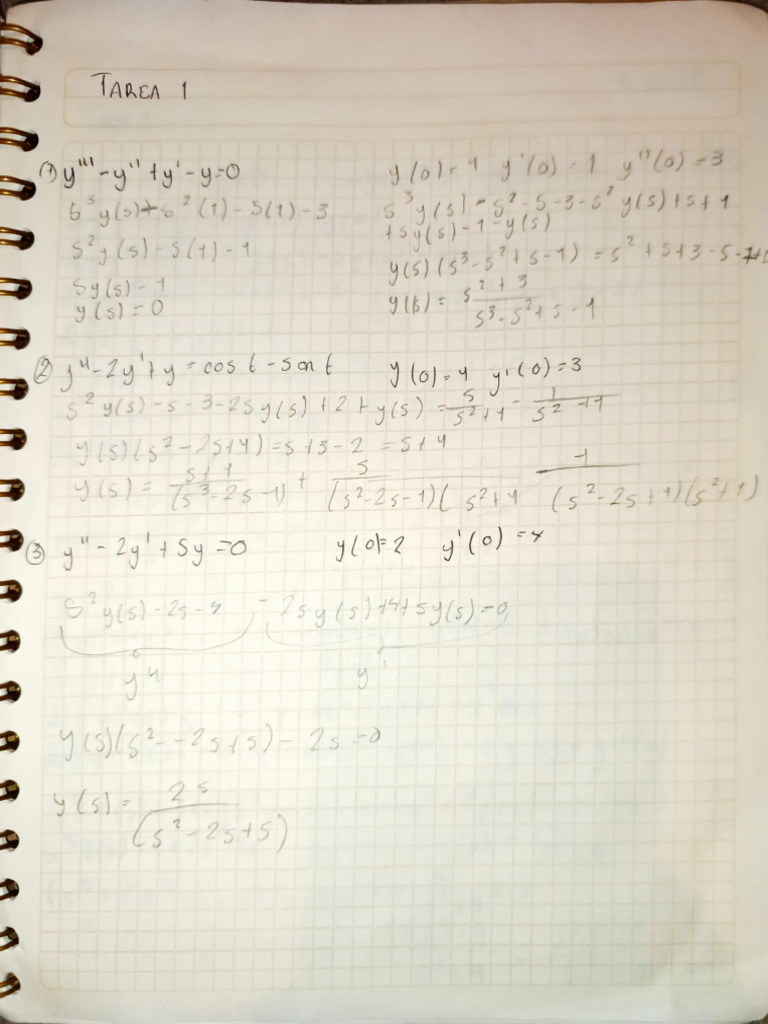 TAREA 1
① y''' - y'' + y' - y = 0 y(0) = 1 y'(0) = 1 y''(0) = 3
s³y(s) + s²(1) - s(1) - 3 s³y(s) - s² - s - 3 - s²y(s) + s + 1
s²y(s) - s(1) - 1 + sy(s) - 1 - y(s)
sy(s) - 1 y(s)(s³ - s² + s - 1) = s² + s + 3 - s - 1 +
y(s) = 0 y(s) = s² + 3 / s³ - s² + s - 1
② y'' - 2y' + y = cos t - sen t y(0) = 1 y'(0) = 3
s²y(s) - s - 3 - 2sy(s) + 2 + y(s) = s/s²+1 - 1/s²+1
y(s)(s² - 2s + 1) = s + 3 - 2 = s + 1
y(s) = s+1/(s³ - 2s - 1) + s/(s² - 2s - 1)(s² + 1 1/(s² - 2s + 1)(s² + 1)
③ y'' - 2y' + 5y = 0 y(0) = 2 y'(0) = 4
s²y(s) - 2s - 4 - 2sy(s) + 4 + 5y(s) = 0
y'' y'
y(s)(s² - - 2s + 5) - 2s = 0
y(s) = 2s/(s² - 2s + 5)